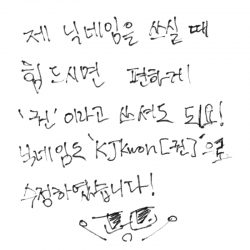 제 닉네임을 쓰실 때
힘드시면 편하게
'퀀'이라고 쓰셔도 되요!
닉네임도 'KJKwon[퀀]'으로
수정하였습니다!